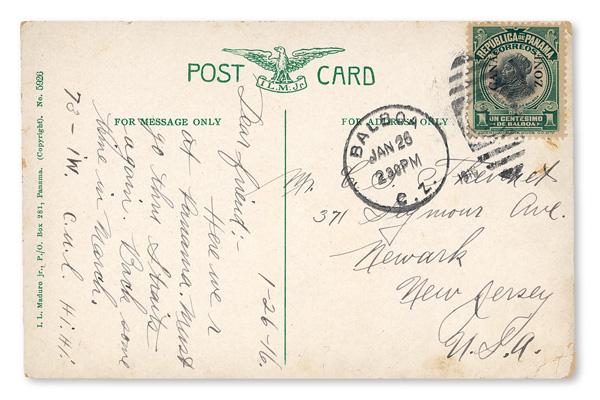 POST CARD
I.L.M.Jr.
FOR MESSAGE ONLY
FOR ADDRESS ONLY
I. L. Maduro jr., P./O. Box 281, Panama. (Copyright). No. 5926
1-26-16.
Dear friend:-
Here we r
at Panama. Must
go thru Straits
again. Back some
time in March.
73 - IW. C.U.L. Hi Hi
REPUBLICA DE PANAMA
CORREOS
CANAL ZONE
1 UN CENTESIMO 1
DE BALBOA
BALBOA
JAN 26
230PM
C. Z.
Mr. C. C.
371 Seymour Ave.
Newark
New Jersey
U.S.A.